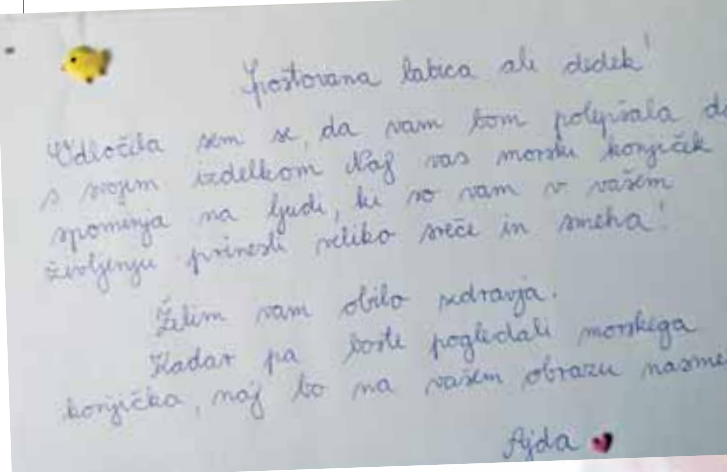 Spoštovana babica ali dedek!
Odločila sem se, da vam bom polepšala da
s svojim izdelkom. Naj vas morski konjiček
spominja na ljudi, ki so vam v vašem
življenju prinesli veliko sreče in smeha!
Želim vam obilo zdravja.
Kadar pa boste pogledali morskega
konjička, naj bo na vašem obrazu nasme
Ajda